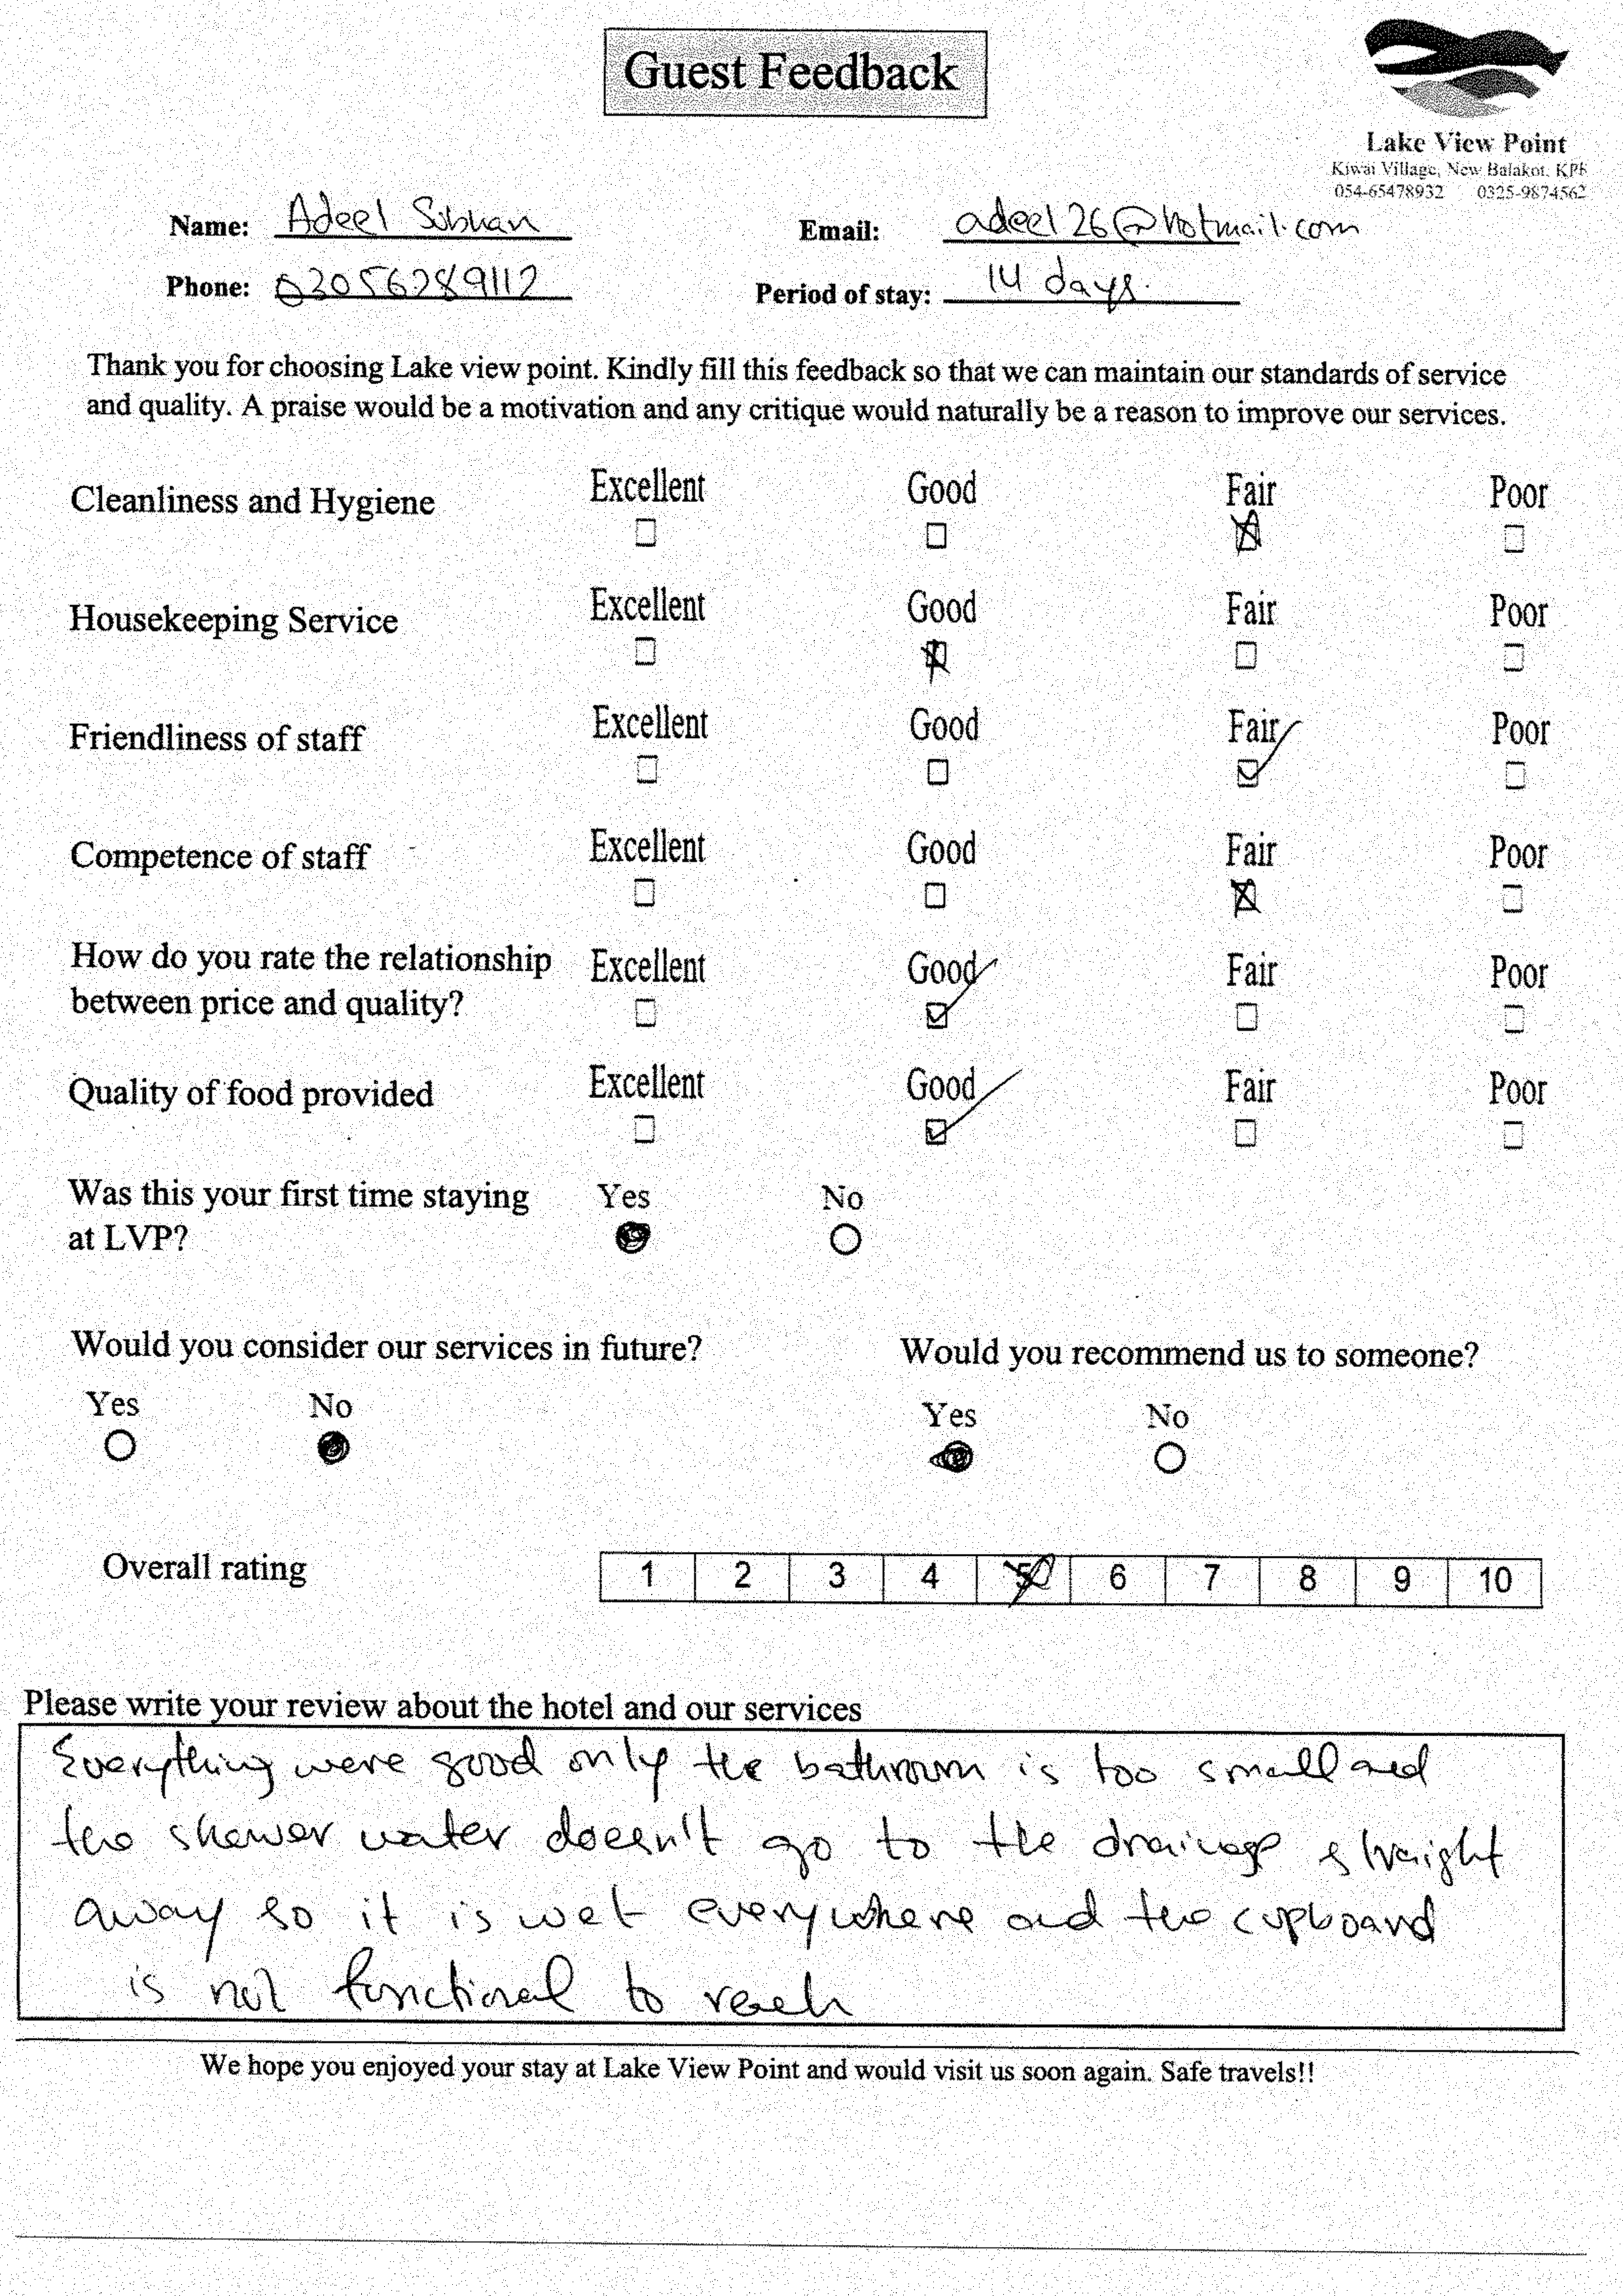 Guest Feedback
Lake View Point
Kiwai Village, New Balakot, KPK
054-65478932 0325-9874562
Name: Adeel Subhan Email: adeel26@hotmail.com
Phone: 03056289112 Period of stay: 14 days.
Thank you for choosing Lake view point. Kindly fill this feedback so that we can maintain our standards of service
and quality. A praise would be a motivation and any critique would naturally be a reason to improve our services.
Cleanliness and Hygiene Excellent Good Fair Poor
Housekeeping Service Excellent Good Fair Poor
Friendliness of staff Excellent Good Fair Poor
Competence of staff Excellent Good Fair Poor
How do you rate the relationship Excellent Good Fair Poor
between price and quality?
Quality of food provided Excellent Good Fair Poor
Was this your first time staying Yes No
at LVP?
Would you consider our services in future? Would you recommend us to someone?
Yes No Yes No
Overall rating 1 2 3 4 5 6 7 8 9 10
Please write your review about the hotel and our services
Everything were good only the bathroom is too small and
the shower water doesn't go to the drainage straight
away so it is wet everywhere and the cupboard
is not functional to reach
We hope you enjoyed your stay at Lake View Point and would visit us soon again. Safe travels!!